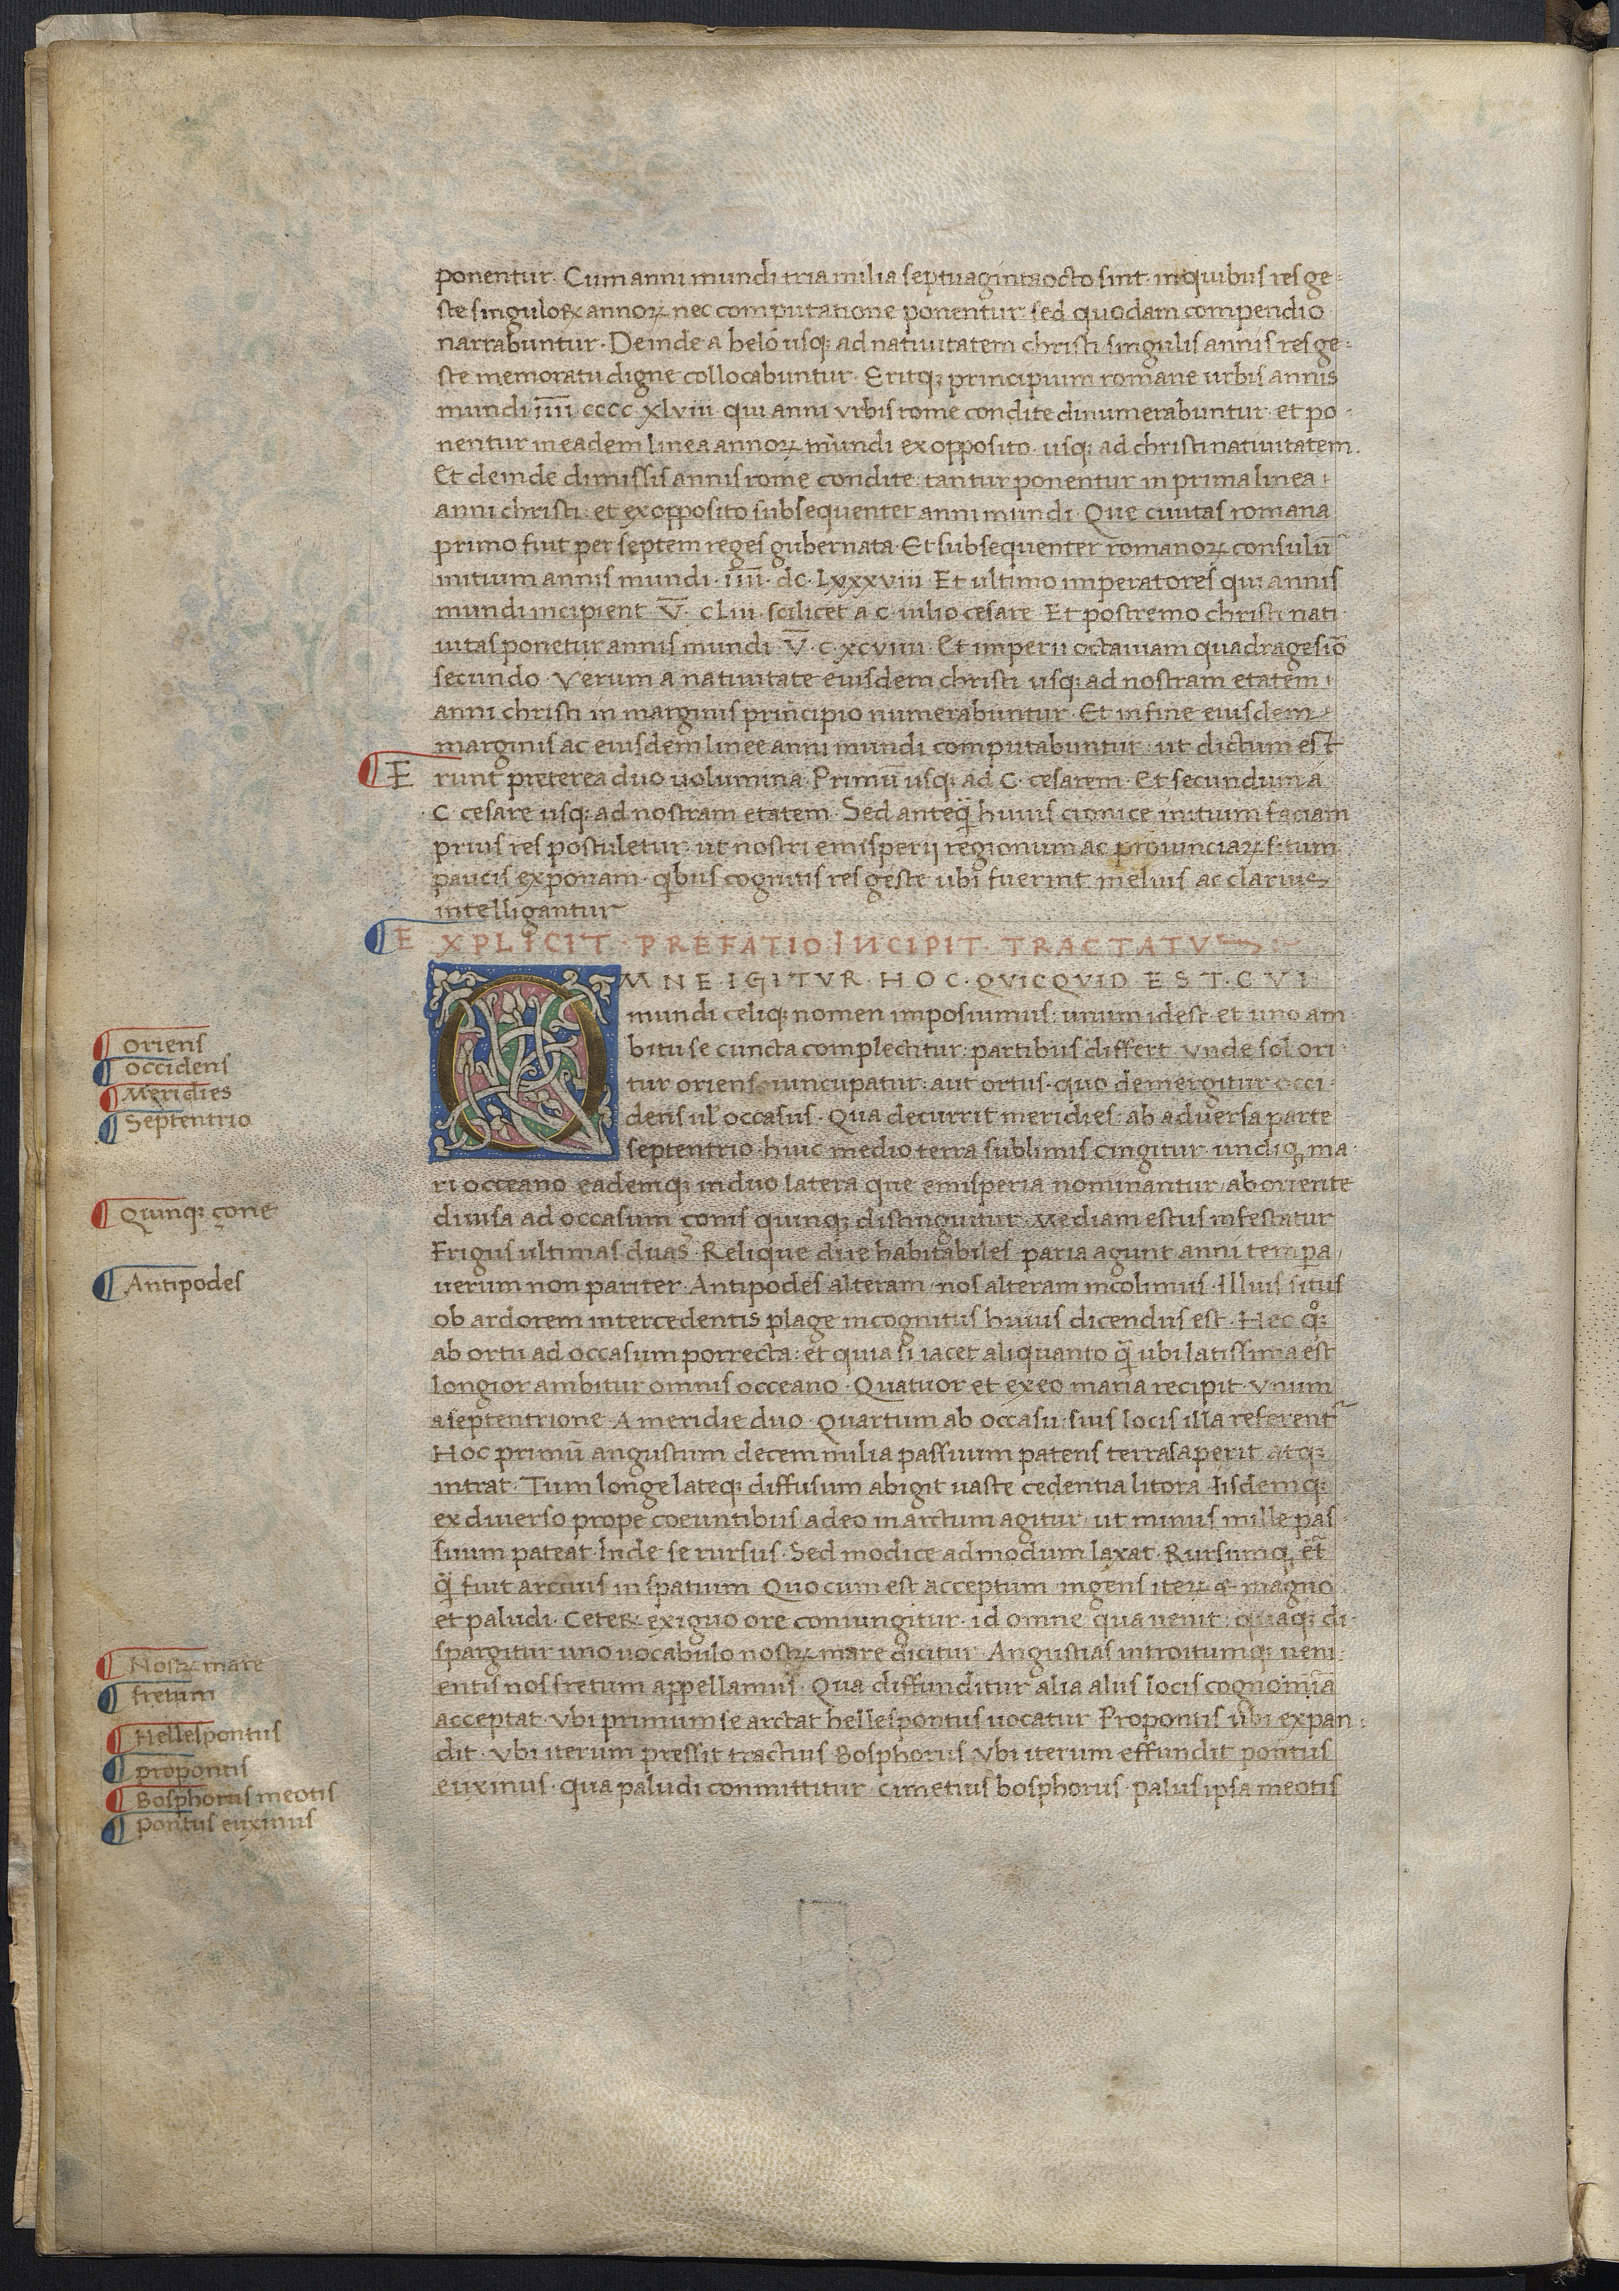 ponentur. Cum anni mundi tria milia septuagintaocto sint in quibus res ge-
ste singuloꝝ annoꝝ nec computatione ponentur sed quodam compendio
narrabuntur. Deinde a belo usqꝫ ad natiuitatem christi singulis annis res ge-
ste memoratu digne collocabuntur. Eritqꝫ principium romane urbis annis
mundi iiii cccc xlviii qui anni vrbis rome condite dinumerabuntur et po-
nentur in eadem linea annoꝝ mundi ex opposito usqꝫ ad christi natiuitatem.
Et deinde dimissis annis rome condite tantur ponentur in prima linea
anni christi et ex opposito subsequenter anni mundi. Que ciuitas romana
primo fuit per septem reges gubernata. Et subsequenter romanoꝝ consulū
initium annis mundi. iiii. dc. Lxxxviii. Et ultimo imperatores qui annis
mundi incipient V̄. cliii. scilicet a c. iulio cesare. Et postremo christi nati
uitas ponetur annis mundi V̄. c. xcviiii. Et imperii octauiani quadragesiō
secundo. Verum a natiuitate eiusdem christi usqꝫ ad nostram etatem
anni christi in marginis principio numerabuntur. Et in fine eiusdem
marginis ac eiusdem linee anni mundi computabuntur: ut dictum est
¶ Erunt preterea duo uolumina. Primū usqꝫ ad C. cesarem. Et secundum a
C. cesare usqꝫ ad nostram etatem. Sed anteq̄ huius cronice initium faciam
prius res postuletur ut nostri emisperij regionum ac prouinciaꝝ situm
paucis exponam. qibus cognitis res geste ubi fuerint melius ac clarius
intelligantur
¶ EXPLICIT. PREFATIO. INCIPIT. TRACTATVS
OMNE. IGITVR. HOC. QVICQVID EST. CVI
mundi celiqꝫ nomen imposiumus: unum id est et uno am
bitu se cuncta complectitur: partibus differt. Vnde sol ori
tur oriens nuncupatur: aut ortus. quo demergitur occi-
dens ul' occasus. Qua decurrit meridies: ab aduersa parte
septentrio. huic medio terra sublimis cingitur undiqꝫ ma
ri occeano eademqꝫ in duo latera que emisperia nominantur ab oriente
diuisa ad occasum çonis quinqꝫ distinguitur. Mediam estus infestatur
Frigus ultimas duas. Relique due habitabiles paria agunt anni tempa
uerum non pariter. Antipodes alteram, nos alteram incolimus. Illius situs
ob ardorem intercedentis plage incognitus huius dicendus est. Hec q̊:
ab ortu ad occasum porrecta: et quia si iacet aliquanto q̄ ubi latissima est
longior ambitur omnis occeano. Quatuor et ex eo maria recipit. Vnum
a septentrione. A meridie duo. Quartum ab occasu: suis locis illa referent̄
Hoc primū angustum decem milia passuum patens terras aperit atqꝫ
intrat. Tum longe lateqꝫ diffusum abigit uaste cedentia litora. Iisdemqꝫ
ex diuerso prope coeuntibus adeo in arctum agitur ut minus mille pas
suum pateat. Inde se rursus. Sed modice admodum laxat. Rursumqꝫ et̄
q̄ fuit arctius in spatium. Quo cum est acceptum ingens iteꝝ & magno
et paludi. Ceteꝝ exiguo ore coniungitur. id omne qua uenit quaqꝫ di
spargitur uno uocabulo nostꝝ mare dicitur. Angustias introitumqꝫ ueni-
entis nos fretum appellamus. Qua diffunditur alia aliis locis cognomīa
acceptat. Vbi primum se arctat hellespontus uocatur. Propontis ubi expan-
dit. Vbi iterum pressit tractius Bosphorus. Vbi iterum effundit pontus
euxinus. qua paludi committitur. cimetius bosphorus. palus ipsa meotis
¶ oriens
¶ occidens
¶ Meridies
¶ Septentrio
¶ Quinqꝫ çone
¶ Antipodes
¶ Nostꝝ mare
¶ fretum
¶ Hellespontus
¶ propontis
¶ Bosphorus meotis
¶ pontus euxinus